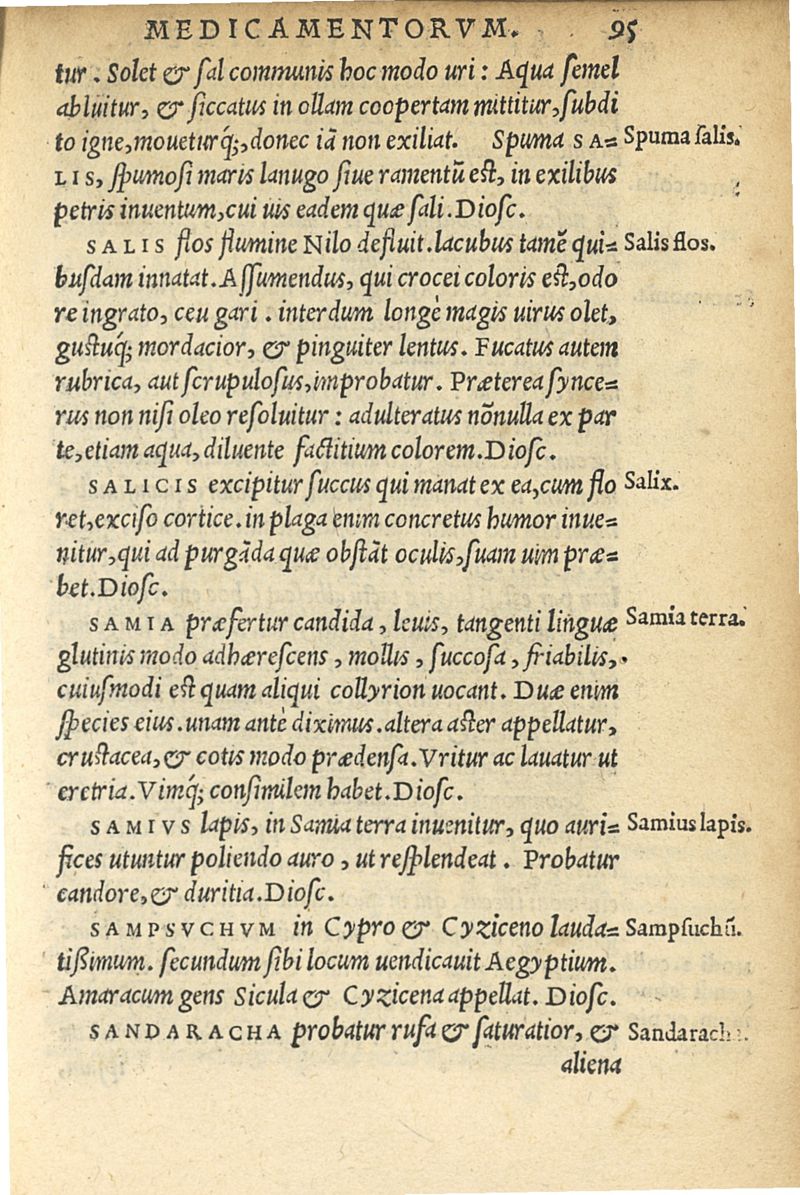 MEDICAMENTORVM. 95
tur. Solet & sal communis hoc modo uri: Aqua semel
abluitur, & siccatus in ollam coopertam mittitur, subdi
to igne, moueturq́;, donec iā non exiliat. Spuma SA= Spuma salis.
LIS, spumosi maris lanugo siue ramentū est, in exilibus
petris inuentum, cui uis eadem quæ sali. Diosc.
SALIS flos flumine Nilo defluit. lacubus tamē qui= Salis flos.
busdam innatat. Assumendus, qui crocei coloris est, odo
re ingrato, ceu gari. interdum longè magis uirus olet,
gustuq́; mordacior, & pinguiter lentus. Fucatus autem
rubrica, aut scrupulosus, improbatur. Præterea synce=
rus non nisi oleo resoluitur: adulteratus nōnulla ex par
te, etiam aqua, diluente factitium colorem. Diosc.
SALICIS excipitur succus qui manat ex ea, cum flo Salix.
ret, exciso cortice. in plaga enim concretus humor inue=
nitur, qui ad purgāda quæ obstāt oculis, suam uim præ=
bet. Diosc.
SAMIA præfertur candida, leuis, tangenti linguæ Samia terra.
glutinis modo adhærescens, mollis, succosa, friabilis,
cuiusmodi est quam aliqui collyrion uocant. Duæ enim
species eius. unam antè diximus. altera aster appellatur,
crustacea, & cotis modo prædensa. Vritur ac lauatur ut
eretria. Vimq́; consimilem habet. Diosc.
SAMIVS lapis, in Samia terra inuenitur, quo auri= Samius lapis.
fices utuntur poliendo auro, ut resplendeat. Probatur
candore, & duritia. Diosc.
SAMPSVCHVM in Cypro & Cyziceno lauda= Sampsuchū.
tißimum. secundum sibi locum uendicauit Aegyptium.
Amaracum gens Sicula & Cyzicena appellat. Diosc.
SANDARACHA probatur rufa & saturatior, & Sandaracha.
aliena